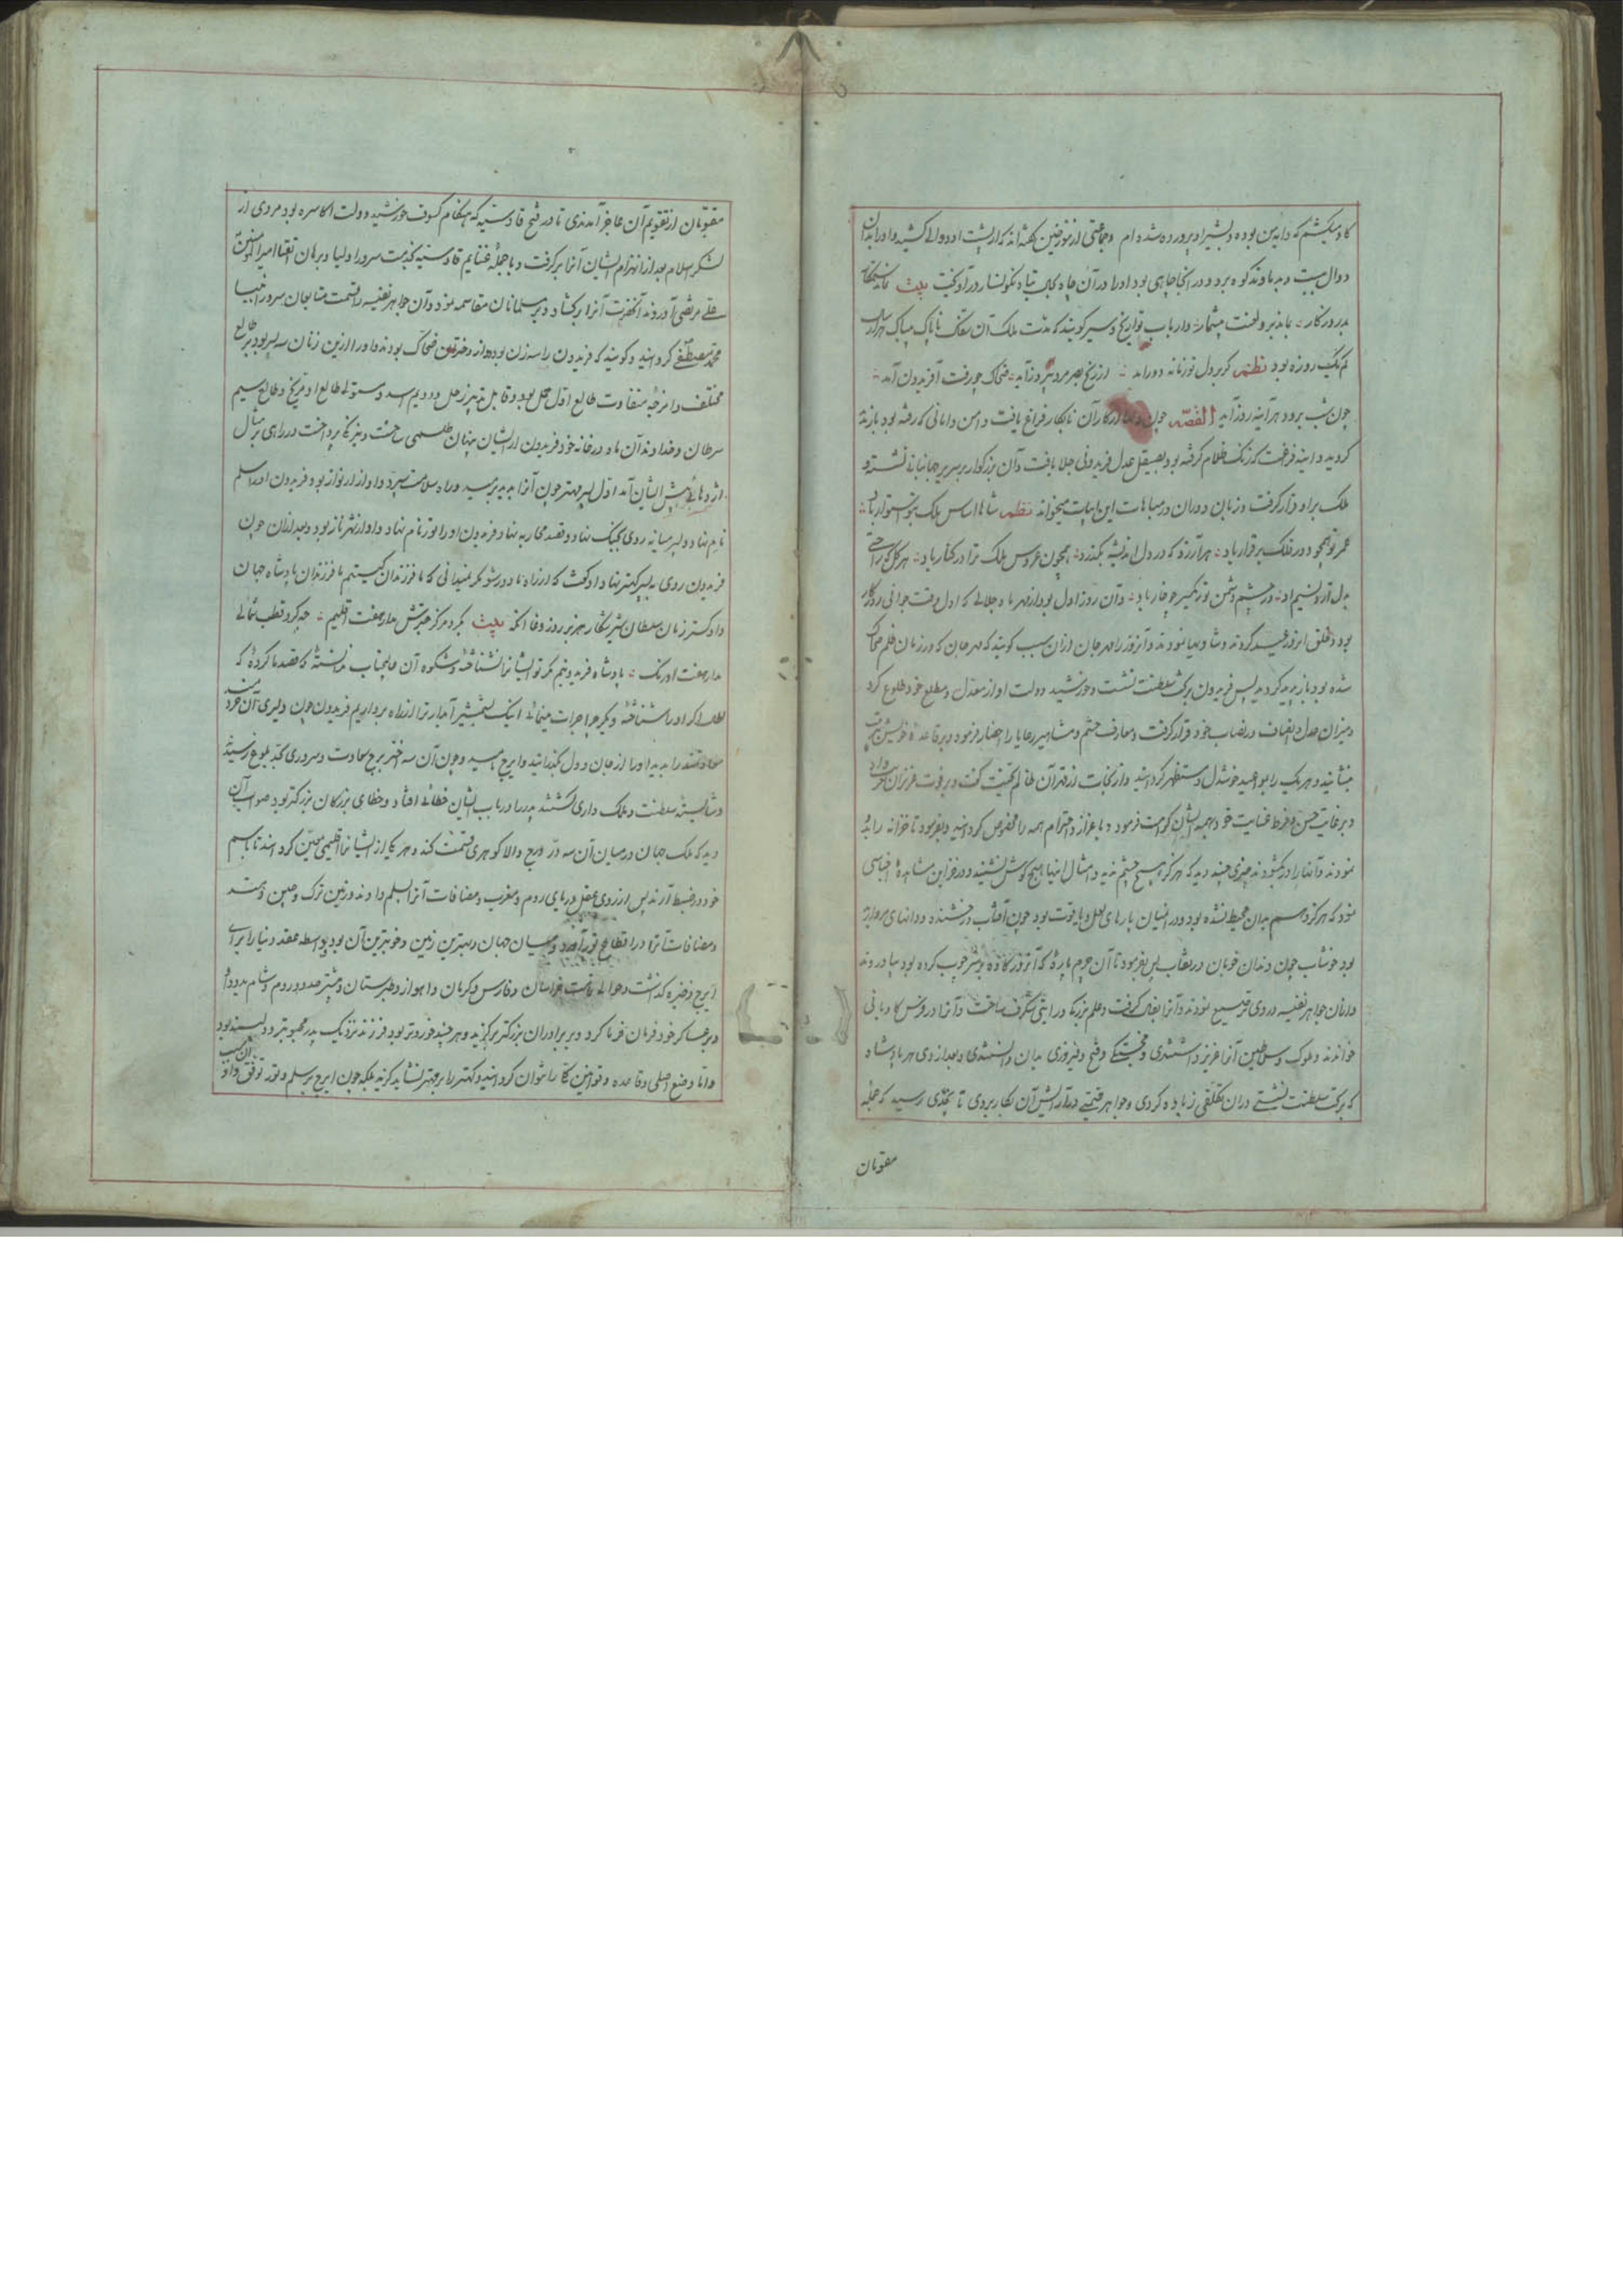 کاو میکشم که دایه من بوده و بشیر او پرورده شده ام و جماعتی از مورخین گفته اند که از پشت او دوالی کشید و او را بدان
دوال ببست و به دماوند کوه برد و در آنجا چاهی بود او را در آن چاه نگونسار در آویخت بیت نماند ستمکار
بد روزگار بماند برو لعنت بیشمار و ارباب تواریخ و سیر گویند که مدت ملک آن سفاک ناپاک بیباک هزار سال
کم یک روزه بود نظم گر بر دل تو زمانه دور آید ضحاک چو رفت آفریدون آید
چون شب برود هر آینه روز آید القصه چون از کار آن نابکار فراغ یافت و امن و امانی که رفته بود باز
گردید و آینه فراغت که زنگ ظلام گرفته بود بصیقل عدل فریدونی جلا یافت و آن بزرگوار بر سریر جهانبانی نشست و
ملک بر او قرار گرفت و زبان دوران در مباهات این ابیات میخواند نظم شاها اساس ملک بتو استوار باد
عمر تو همچو دور فلک برقرار باد هر آرزو که در دل اندیشه بگذرد همچون عروس ملک ترا در کنار باد هر گل که راحتی
بدل آرد نسیم او در چشم دشمن تو بکیر چو خار باد و آن روز اول بود از مهر ماه جلالی که اول وقت جوانی روزگار
بود و خلق آنروز عید کردند و شادیها نمودند و آنروز را مهرجان از آن سبب گویند که مهر جان که در زمان ظلم ضحاک
شده بود باز پدید گردید پس فریدون بر تخت سلطنت نشست و خورشید دولت او از معدل و مطلع خود طلوع کرد
و میزان عدل و انصاف در نصاب خود قرار گرفت و معارف حشم و مشاهیر رعایا را احضار فرمود و بر قاعده خویش
بنشانید و هر یک را بوعید خوشدل و مستظهر گردانید و از نجات از قهر آن ظالم تهنیت گفت و بر فوت عزیزان
و بر غایت حسن و فرط عنایت خود همه ایشان کرامت فرمود و باعزاز و احترام همه را مخصوص گردانید و بفرمود تا خزانه را
نمودند و آنبار را در گشودند چیزی چند دید که هرگز هیچ چشم ندیده و امثال اینها هیچ گوش نشنیده و در
نبود که هرگز وهم بدان محیط نشده بود و در آنمیان بارهای لعل و یاقوت بود چون آفتاب درخشنده و دانهای مروارید
بود خوشاب چون دندان خوبان در پس بفرمود تا آن چرم پاره که آنروز کاوه بر سر چوب کرده بود بیاوردند
و از آن جواهر نفیسه در وی ترصیع نمودند و آنرا بفال گرفت و علم بزرگ در رایتی شگرف ساخت و آنرا درفش کاویانی
خواندند و ملوک و سلاطین آنرا عزیز داشتندی و خجستگی و فتح و فیروزی بدان دانستندی و بعد از وی هر پادشاه
که بر تخت سلطنت نشستی در آن تکلفی زیاده کردی و جواهر قیمتی در آرایش آن بکار بردی تا بحدی رسید که جمله
مقومان
مقومان از تقویم آن عاجز آمدندی تا در فتح قادسیه که هنگام کسوف خورشید دولت اکاسره بود مردی از
لشکر اسلام بعد از انهزام ایشان آنرا بر گرفت و با جمله غنایم قادسیه بخدمت سرور اولیا و برهان اتقیا امیر المومنین
علی مرتضی آوردند آنحضرت آنرا برکشاد و بر مسلمانان مقاسمه نمود و آن جواهر نفیسه را قسمت متابعان سرور انبیا
محمد مصطفی گردانید و گویند که فریدون را سه زن بود و از دختر ضحاک بودند و او را ازین زنان سه پسر بود بر طالع
مختلف و امزجه متفاوت طالع اول حمل بود و قابل تدبیر زحل و دویم اسد و مستولی طالع او مریخ و طالع سیم
سرطان و خداوند آن ماه در خانه خود فریدون از ایشان پنهان طلسمی ساخت و نیرنگ پرداخت و در راهی بر مثال
اژدهائی پیش ایشان آمد اول پسر مهتر چون آنرا بدید بترسید و راه سلامت سپرد و او از ارنواز بود و فریدون او را سلم
نام نهاد و پسر میانه روی بجنگ نهاد و قصد محاربه نهاد و فریدون او را تور نام نهاد و او از شهرناز بود و بعد از آن چون
فریدون روی به پسر کهتر نهاد او گفت که از راه ما دور شو مگر نمیدانی که ما فرزندان کیستیم ما فرزندان پادشاه جهان
دادگستر زمان سلطان شیر شکار هزبر روز وغا آنکه بیت بگرد مرکز چترش مدار هفت اقلیم چه گرد قطب شمالی
مدار هفت اورنگ پادشاه فریدونیم مگر تو ایشانرا نشناخته و شکوه آن عالیجناب ندانسته که قصد ما کرده که
اگر او را شناخته و دیگر چرا جرات مینمائی اینک بشمشیر آبدار ترا از راه برداریم فریدون چون دلیری آن فرزند
سعادتمند را بدید او را از جان و دل بگذرانید و ایرج نامید و چون آن سه اختر برج سعادت و سروری بحد بلوغ رسیدند
و شایسته سلطنت و ملک داری گشتند پدر را در باب ایشان خطائی افتاد و خطای بزرگان بزرگتر بود صواب آن
دید که ملک جهان در میان آن سه در درج والا گوهری قسمت کند و هر یک از ایشانرا اقلیمی معین گرداند تا باسم
خود در ضبط آرند پس از روی عقل دریای روم و مغرب و مضافات آنرا بسلم داد و زمین ترک و چین و هند
و مضافات آنرا در اقطاع تور آورد و میان جهان و بهترین زمین و خوبترین آن بود بواسطه عقد دنیا را برای
ایرج ذخیره گذاشت و حوالی خراسان و فارس و کرمان و اهواز و طبرستان و بیشتر حدود روم و شام بدو داد
و بر عساکر خود فرمان فرما کرد و بر برادران بزرگتر برگزید و هر چند خوردتر بود فرزند نزدیک پدر محبوبتر و دلپسند بود
و اما وضع اصلی و قاعده و قوانین را نتوان گردانید و کهتر را بر مهتر نشاید گزید بلکه چون ایرج بر سلم و تور تفوق داد